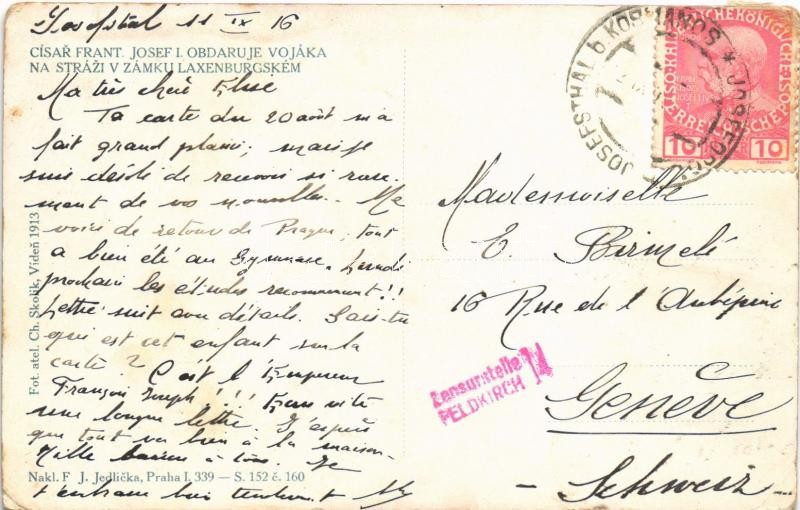 Josefstal 11 IX 16
CÍSAŘ FRANT. JOSEF I. OBDARUJE VOJÁKA
NA STRÁŽI V ZÁMKU LAXENBURGSKÉM
Ma très chère Else
Ta carte du 20 août m'a
fait grand plaisir; mais je
suis désolé de recevoir si rare-
ment de vos nouvelles. Me
voici de retour de Prague, tout
a bien été au Gymnase. Lundi
prochain les études recommencent!!
Lettre suit avec détails. Sais-tu
qui est cet enfant sur la
carte? C'est l'Empereur
François Joseph!!! vite
une longue lettre. J'espère
que tout va bien à la maison.
Mille baisers à tous. Je
t'embrasse bien tendrement
Fot. atel. Ch. Skolik, Vídeň 1913
Nakl. F. J. Jedlička, Praha I. 339 — S. 152 č. 160
JOSEFSTHAL b. KOSMANOS
10 10
Mademoiselle
E. Birmelé
16 Rue de l'Aubépine
Zensurstelle
FELDKIRCH
Genève
- Schweiz -